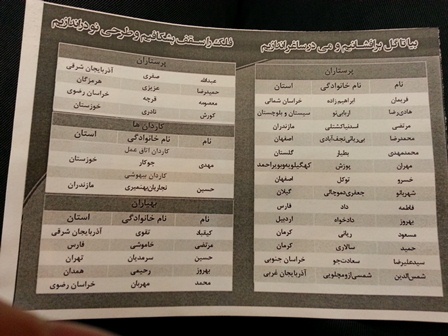 بیا تا گل برافشانیم و می در ساغر اندازیم
پرستاران
نام نام خانوادگی استان
فریمان ابراهیم‌زاده خراسان شمالی
هادی‌رضا اربابی‌نو سیستان و بلوچستان
مرتضی مازندران
محمدرضا نجف‌آبادی اصفهان
محمدمهدی گلستان
مهران پوزش کهگیلویه‌وبویراحمد
خسرو توکل اصفهان
شهربانو جعفری گیلان
فاطمه داد فارس
بهروز دادخواه اردبیل
مسعود ربانی کرمان
حمید سالاری کرمان
سیدعلیرضا سعادت‌جو خراسان جنوبی
شمس‌الدین شمسی آذربایجان غربی
فلک را سقف بشکافیم و طرحی نو دراندازیم
پرستاران
عبدالله صفری آذربایجان شرقی
حمیدرضا عزیزی هرمزگان
معصومه قرچه خراسان رضوی
کورش نادری خوزستان
کاردان ها
نام نام خانوادگی استان
کاردان اتاق عمل
مهدی جوکار خوزستان
کاردان بیهوشی
حسین نجاریان‌بهنمیری مازندران
بهیاران
نام نام خانوادگی استان
کیقباد تقوی آذربایجان شرقی
مرتضی خاموشی فارس
حسین سرمدیان تهران
بهروز رحیمی همدان
محمد مهربان خراسان رضوی